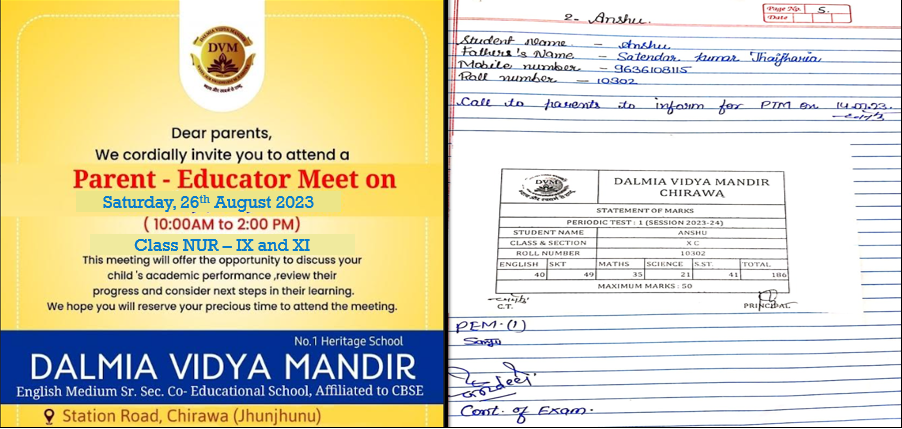 DALMIA VIDYA MANDIR
DVM
Dear parents,
We cordially invite you to attend a
Parent - Educator Meet on
Saturday, 26th August 2023
( 10:00AM to 2:00 PM)
Class NUR – IX and XI
This meeting will offer the opportunity to discuss your
child 's academic performance ,review their
progress and consider next steps in their learning.
We hope you will reserve your precious time to attend the meeting.
No.1 Heritage School
DALMIA VIDYA MANDIR
English Medium Sr. Sec. Co- Educational School, Affiliated to CBSE
Station Road, Chirawa (Jhunjhunu)
Page No. 5.
Date
2. Anshu.
Student Name - Anshu
Father's Name - Satendar Kumar Thajharia
Mobile number - 9636108115
Roll number - 10302
Call to parents to inform for PTM on 14.07.23.
DVM
DALMIA VIDYA MANDIR
CHIRAWA
STATEMENT OF MARKS
PERIODIC TEST : 1 (SESSION 2023-24)
STUDENT NAME ANSHU
CLASS & SECTION X C
ROLL NUMBER 10302
ENGLISH SKT MATHS SCIENCE S.ST. TOTAL
40 49 35 21 41 186
MAXIMUM MARKS : 50
C.T. PRINCIPAL
PEM-(1)
Cont. of Exam.